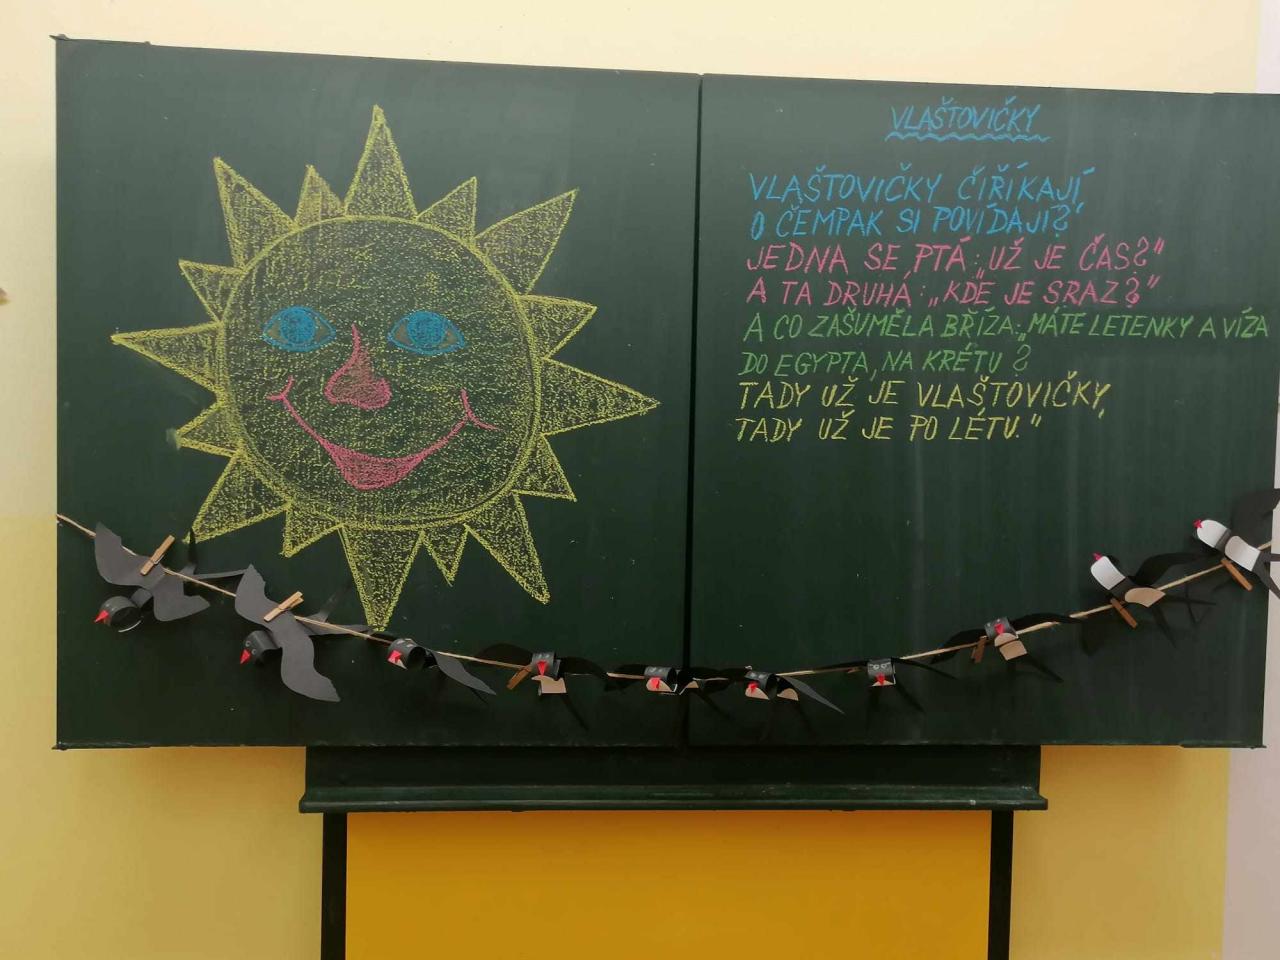 VLAŠTOVIČKY
VLAŠTOVIČKY ČIŘÍKAJÍ,
O ČEMPAK SI POVÍDAJÍ?
JEDNA SE PTÁ: „UŽ JE ČAS?"
A TA DRUHÁ: „KDE JE SRAZ?"
A CO ZAŠUMĚLA BŘÍZA: „MÁTE LETENKY A VÍZA
DO EGYPTA, NA KRÉTU?
TADY UŽ JE VLAŠTOVIČKY,
TADY UŽ JE PO LÉTU."